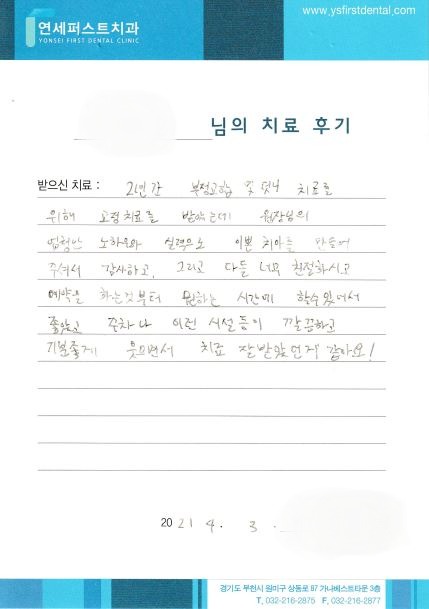 www.ysfirstdental.com
연세퍼스트치과
YONSEI FIRST DENTAL CLINIC
님의 치료 후기
받으신 치료 : 2년간 부정교합 및 덧니 치료를
위해 교정치료를 받았는데 원장님의
엄청난 노하우와 실력으로 이쁜 치아를 만들어
주셔서 감사하고, 그리고 다들 너무 친절하시고
예약을 하는것부터 원하는 시간에 할수있어서
좋았고 주차나 이런 시설들이 깔끔하고
기분좋게 웃으면서 치료 잘받았던거 같아요!
2021 4. 3.
경기도 부천시 원미구 상동로 87 가나베스트타운 3층
T. 032-216-2875 F. 032-216-2877